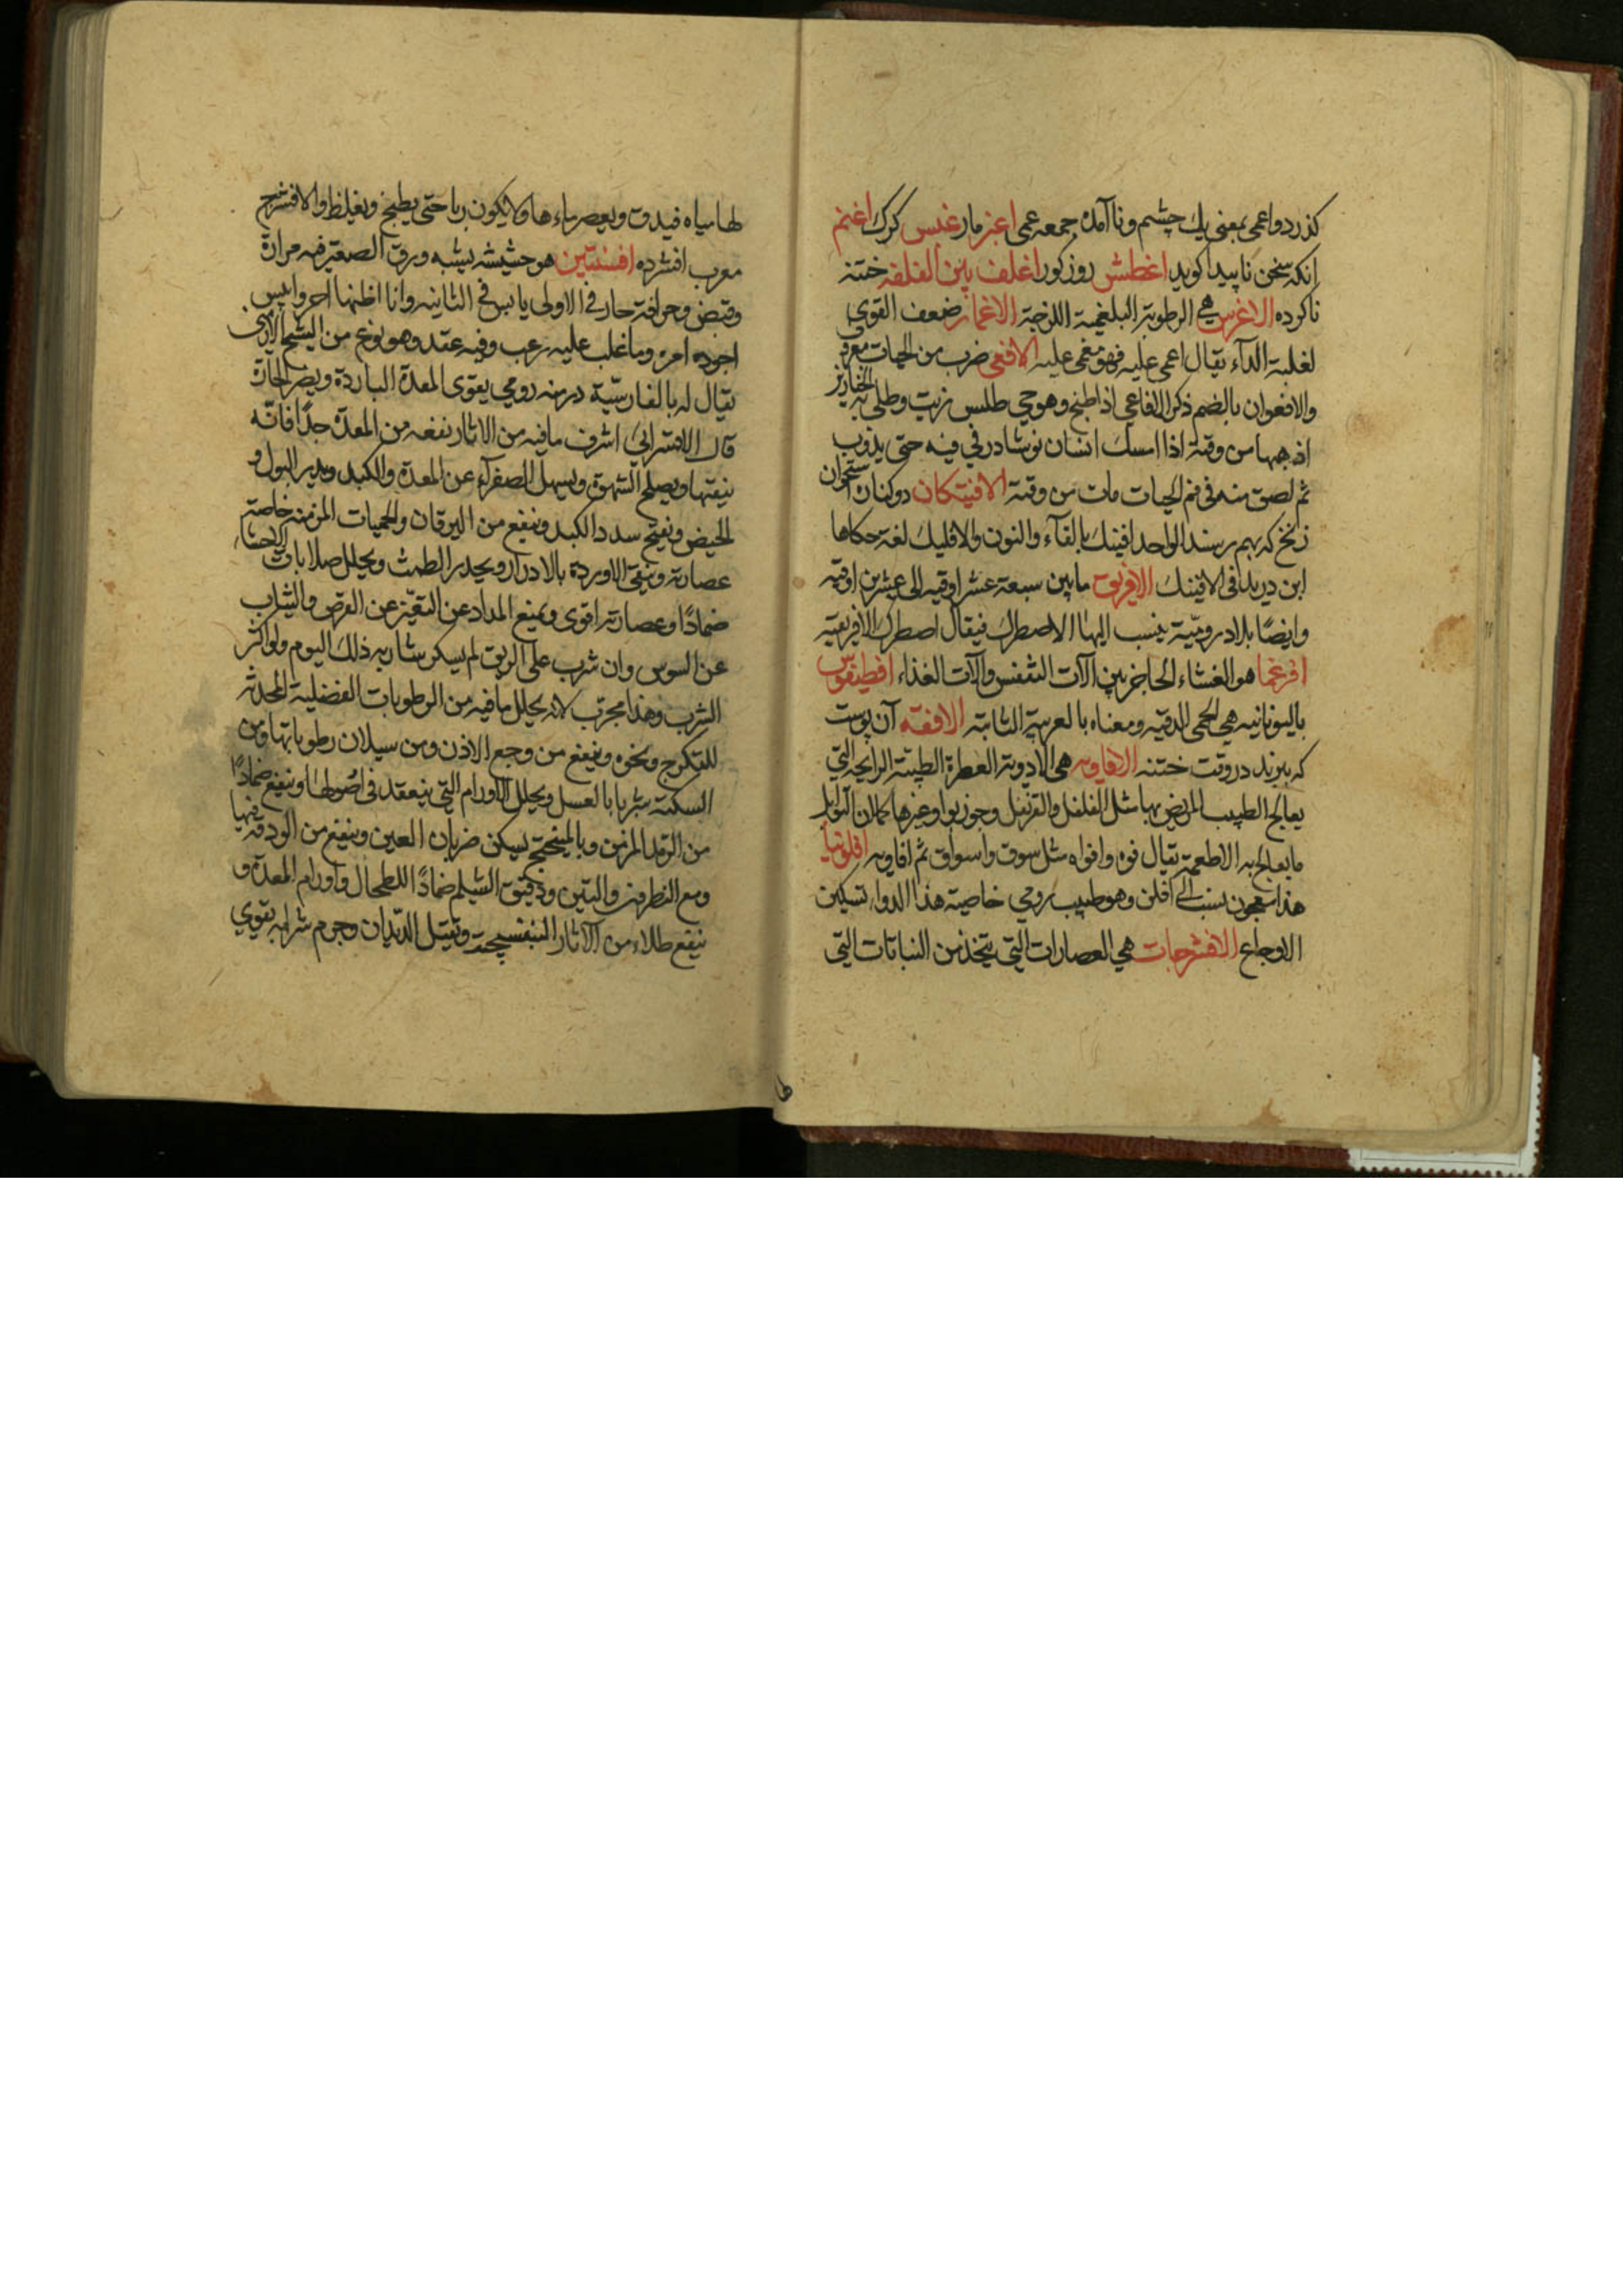 كذرد واعمى بمعنى يك چشم ونا آمده جمعه عمى اعنز مار غبس كرك اغتم
انكه سخن ناپيدا كويد اغطش روزكور اغلف بين الغلفه ختنه
ناكرده الاغرس هي الرطوبة البلغمية اللزجة الاغماز ضعف القوى
لغلبة الدآء يقال اغمى عليه فهو مغمى عليه الافعى ضرب من الحيات معروف
والافعوان بالضم ذكر الافاعى اذا طبخ وهو حي طلس بزيت وطلى به الخنازير
اذهبها من وقته اذا امسك انسان نوشادر في فيه حتى يذوب
ثم لصق منه فى فم الحيات مات من وقته الافنيكان دو كنان استخوان
زنخ كه بهم رسند الواحد افنيك بالفآء والنون والافليك لغة حكاها
ابن دريد فى الافنيك الافريق ما بين سبعة عشر اوقيه الى عشرين اوقيه
وايضًا بلاد روميّة ينسب اليها الاصطرك فيقال اصطرك الافريقيه
افرغما هو الغشاء الحاجز بين آلات التنفس وآلات الغذاء افطيقوس
باليونانيه هي الحمى الدقيه ومعناه بالعربية الثابته الافقه آن پوست
كه ببرند در وقت ختنه الافاويه هى الادوية العطرة الطيبة الرايحه التي
يعالج الطبيب المريض بها مثل الفلفل والقرنفل وجوزبوا وغيرها كما ان التوابل
ما يعالج به الاطعمة يقال فوه وافواه مثل سوق واسواق ثم افاويه افلونيا
هذا معجون ينسب الى افلن وهو طبيب رومي خاصية هذا الدواء تسكين
الاوجاع الافشرجات هي العصارات التي يتخذ من النباتات التي
لها مياه فيدق ويعصر ماءها ولا يكون ربا حتى يطبخ ويغلظ والافشرج
معرب افشرده افسنتين هو حشيشه يشبه ورق الصعتر فيه مرارة
وقبض وحرافة حار في الاولى يابس في الثانيه وانا اظنها احر وايبس
اجوده وما غلب عليه زغب وفيه عقد وهو نوع من الشيح الارمنى
يقال له بالفارسيّة درمنه رومي يقوى المعدة الباردة ويضر الحارة
قال الاقسرائى اشرف ما فيه من الاثار نفعه من المعدة جدًا فانّه
ينقيها ويصلح الشهوة ويسهل الصفرآء عن المعدة والكبد ويدير البول و
الحيض ويفتح سدد الكبد وينفع من اليرقان والحميات المزمنه خاصة
عصارته وينقى الاوردة بالادرار ويحدر الطمث ويحلل صلابات الاحشاء
ضمادًا وعصارته اقوى ويمنع المداد عن التغيّر عن القرض والثياب
عن السوس وان شرب على الريق لم يسكر شاربه ذلك اليوم ولو اكثر
الشرب وهذا مجرّب لانه يحلل ما فيه من الرطوبات الفضلية المحدثه
للتكرج ونحوه وينفع من وجع الاذن ومن سيلان رطوباتها ومن
السكتة شربا بالعسل ويحلل الاورام التي ينعقد فى اصولها وينفع ضمادًا
من الرمد المزمن وبالميبختج يسكن ضربان العين وينفع من الودقة فيها
ومع النطرون والتين ودقيق الشيلم ضمادًا للطحال واورام المعدة و
ينفع طلاء من الاثار البنفسجية ويقتل الديدان وجرم شرابه يقوي